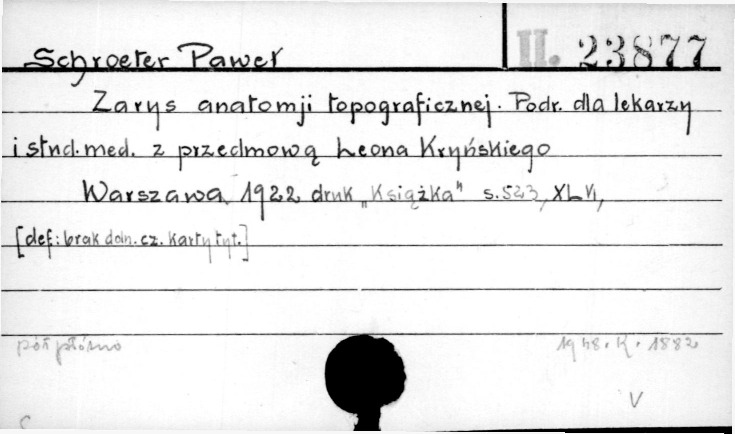 Schroeter Paweł
II. 23877
Zarys anatomji topograficznej. Podr. dla lekarzy
i stud. med. z przedmową Leona Kryńskiego
Warszawa 1922 druk „Książka" s. 523, XLVI,
[def: brak doln. cz. karty tyt.]
pół płótno
1948. K. 1882
V
C